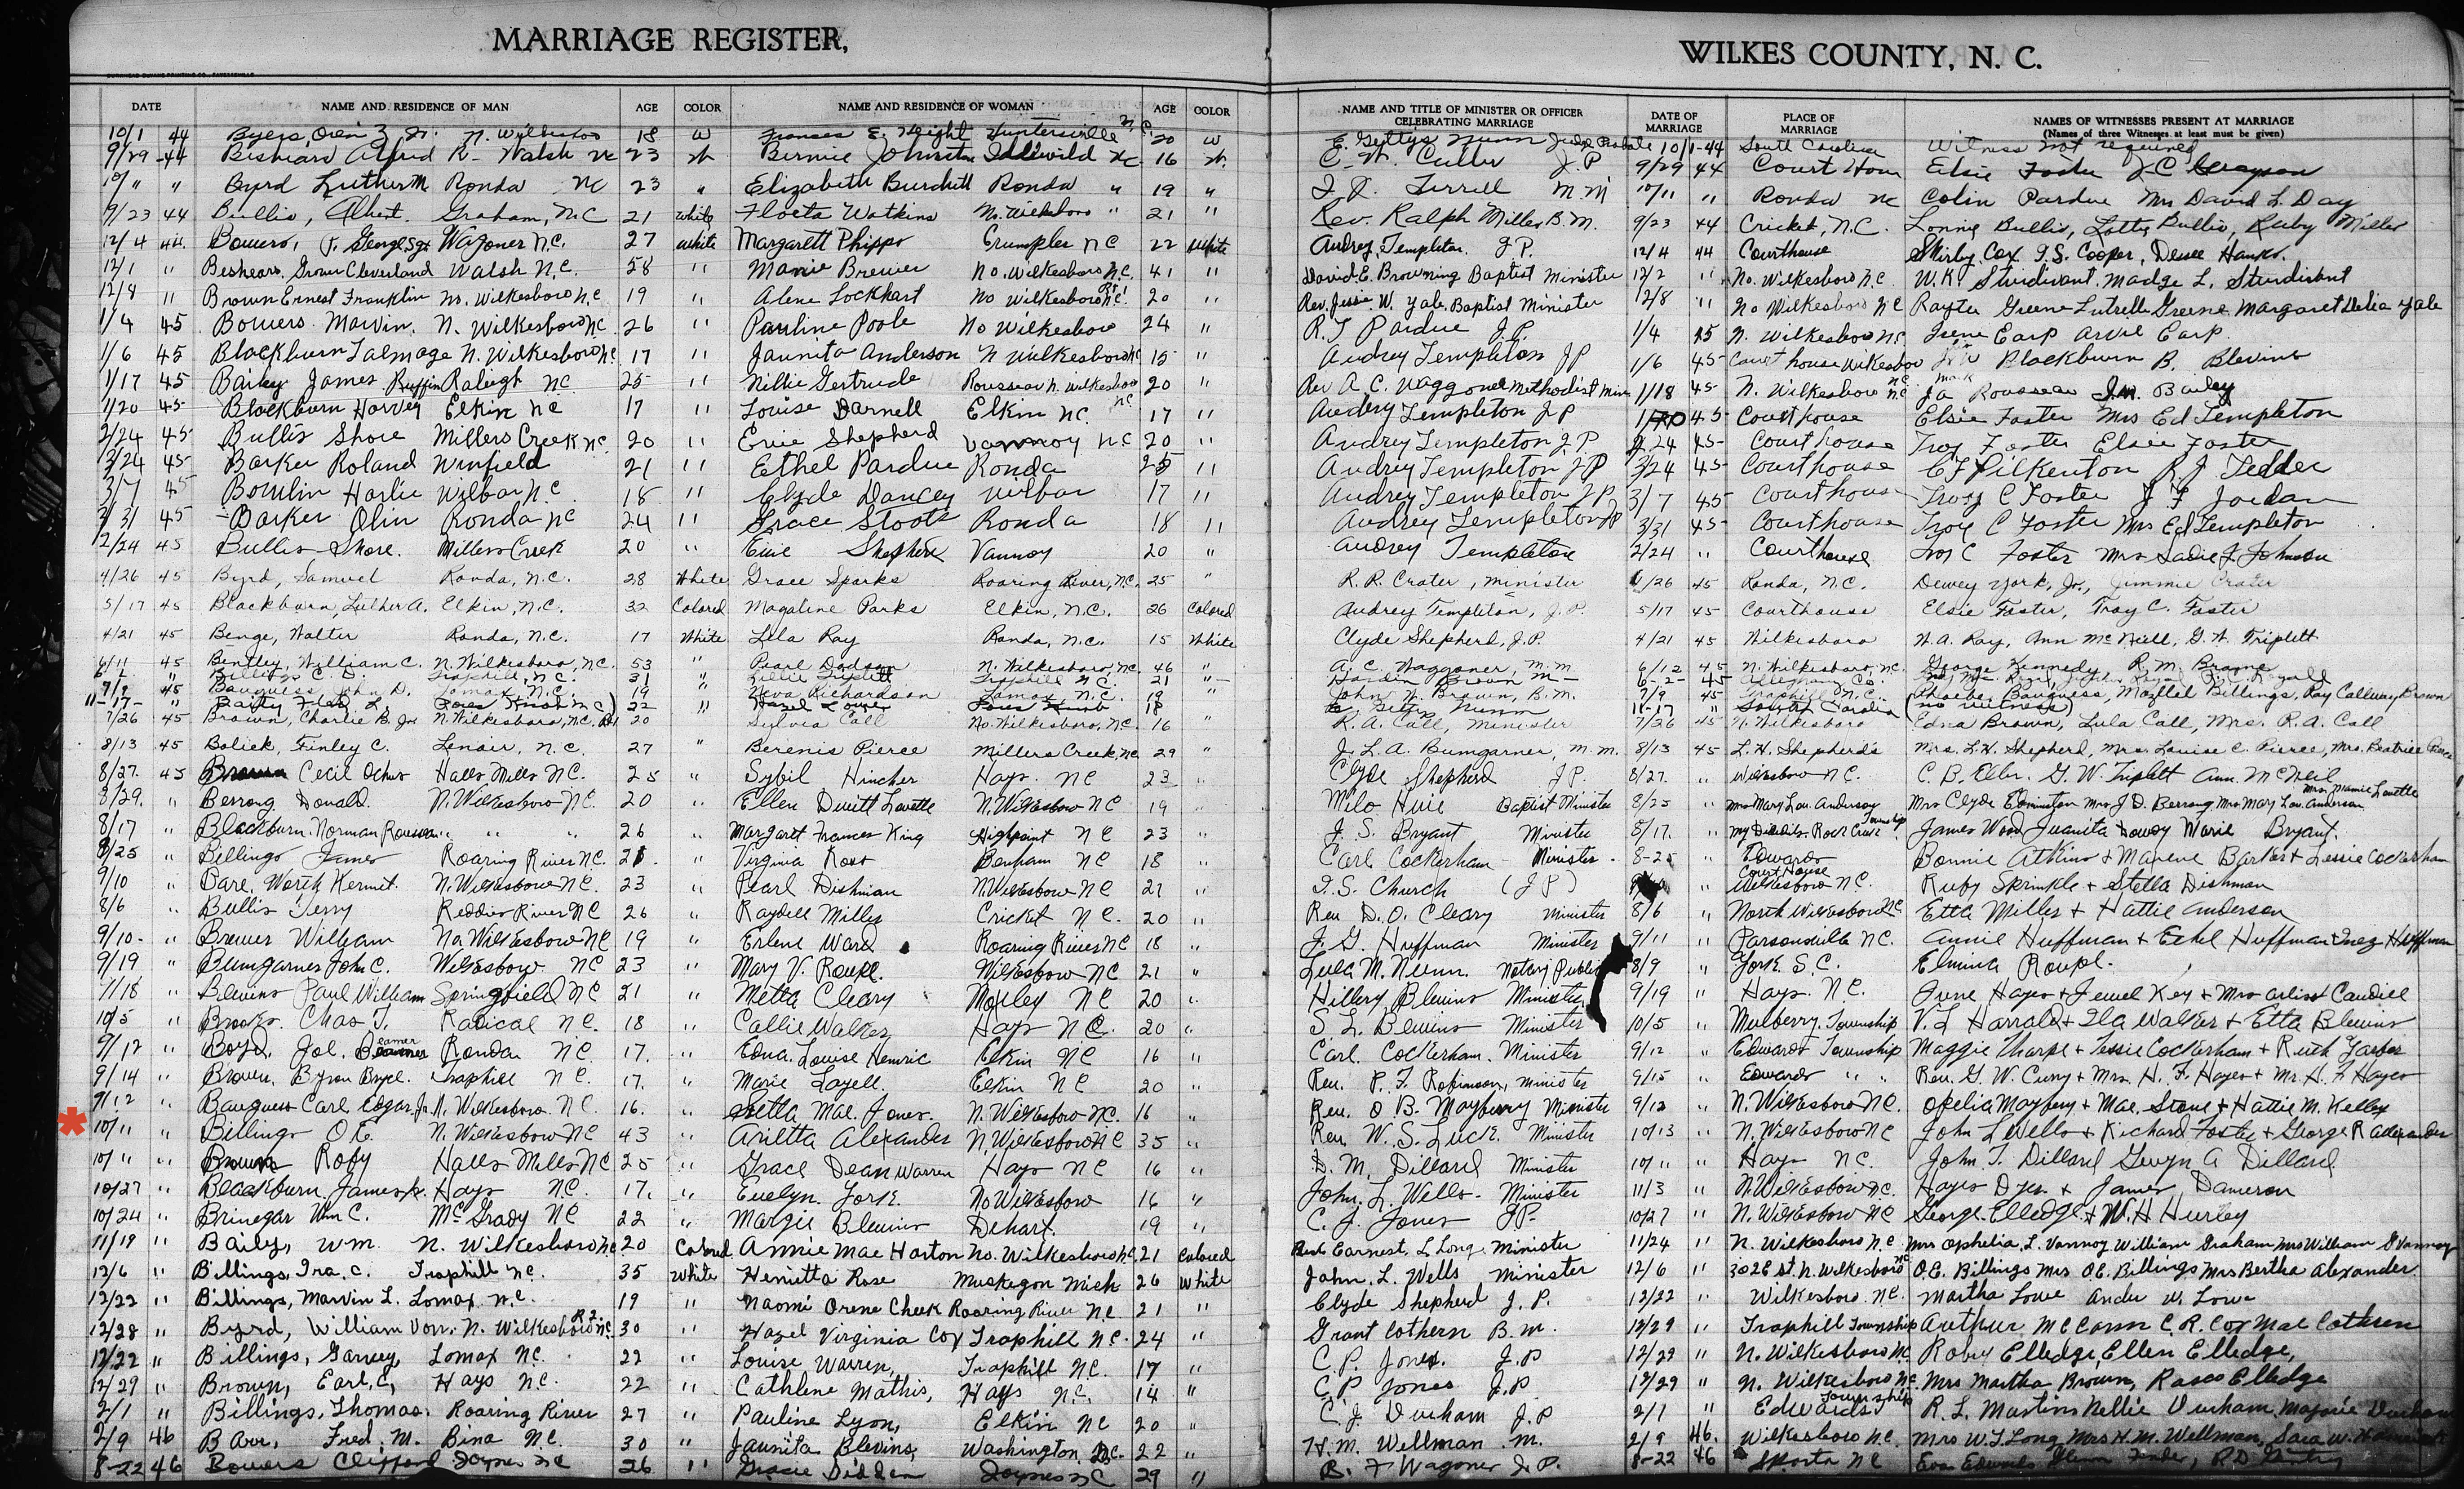 MARRIAGE REGISTER,
WILKES COUNTY, N. C.
DATE NAME AND RESIDENCE OF MAN AGE COLOR NAME AND RESIDENCE OF WOMAN AGE COLOR NAME AND TITLE OF MINISTER OR OFFICER CELEBRATING MARRIAGE DATE OF MARRIAGE PLACE OF MARRIAGE NAMES OF WITNESSES PRESENT AT MARRIAGE
(Names of three Witnesses at least must be given)
10/1 44 Byers, Oren Jr. N. Wilkesboro 18 W Frances E. Huntersville N.C. 20 W E. Gettys Nunn Judge Probate 10/1-44 South Carolina Witness not required
9/29-44 Alfred R- Walsh NC 23 W. Bernice Johnston Idlewild NC. 16 W. C. W. Culler J.P 9/29 44 Court House Elsie Foster J.C. Grayson
10/" " Byrd Luther M Ronda NC 23 " Elizabeth Burchett Ronda " 19 " Terrell M M 10/11 " Ronda NC Colin Pardue Mrs David L. Day
9/23 44 Bullis, Albert. Graham, N.C 21 White Floeta Watkins No. Wilkesboro " 21 " Rev. Ralph Miller, B.M. 9/23 44 Cricket, N.C. Lonnie Bullis, Lottie Bullis, Ruby Miller
12/4 44. Bowers, George Sgt Wagoner N.C. 27 White Margarett Phipps Crumpler NC 22 White Audrey Templeton J.P. 12/4 44 Courthouse Shirley Cox T.S. Cooper, Hanks.
12/1 " Beshears, Grover Cleveland Walsh N.C. 58 " Mamie Brewer No. Wilkesboro N.C. 41 " David E. Browning Baptist Minister 12/2 " No. Wilkesboro N.C. W.K. Sturdivant, Madge L. Sturdivant
12/8 " Brown Ernest Franklin No. Wilkesboro N.C 19 " Alene Lockhart No Wilkesboro N.C. 20 " Rev. Jessie W. Yale, Baptist Minister 12/8 " No Wilkesboro NC Greene Lutrelle Greene Margaret Delia Yale
1/4 45 Bowers Marvin, N. Wilkesboro NC 26 " Pauline Poole No Wilkesboro 24 " R.T Pardue J.P. 1/4 45 N. Wilkesboro NC. Irene Earp Arvil Earp
1/6 45 Blackburn Talmage N. Wilkesboro NC. 17 " Jaunita Anderson N Wilkesboro NC 15 " Audrey Templeton JP 1/6 45 Court house Wilkesboro Blackburn B. Blevins
1/17 45 Bailey James Ruffin Raleigh NC 25 " Nillie Gertrude Rousseau N. Wilkesboro NC 20 " Rev A. C. Waggoner Methodist Min 1/18 45 N. Wilkesboro NC Rousseau J.M. Bailey
1/20 45 Blackburn Harvey Elkin NC 17 " Louise Darnell Elkin NC. 17 " Audrey Templeton J P 1/20 45 Courthouse Elsie Foster Mrs Ed Templeton
2/24 45 Bullis Shore Millers Creek NC. 20 " Evie Shepherd Vannoy NC 20 " Audrey Templeton J.P. 2.24 45 Court house Troy Foster Elsie Foster
3/24 45 Barker Roland Winfield 21 " Ethel Pardue Ronda 25 " Audrey Templeton J P 3/24 45 Courthouse C F Pilkenton R. J Tedder
3/7 45 Bowlin Harlie Wilbar N.C. 18 " Clyde Dancey Wilbar 17 " Audrey Templeton J P 3/7 45 Courthouse Troy C Foster J F Jordan
3/31 45 Barker Olin Ronda NC 24 " Grace Stoots Ronda 18 " Audrey Templeton JP 3/31 45 Courthouse Troy C Foster Mrs Ed Templeton
2/24 45 Bullis Shore. Millers Creek 20 " Evie Shepherd Vannoy 20 " Audrey Templeton 2/24 " Courthouse Troy C Foster Mrs Sadie J. Johnson
4/26 45 Byrd, Samuel Ronda, N.C. 28 White Grace Sparks Roaring River, N.C. 25 " R. R. Crater, Minister /26 45 Ronda, N.C. Dewey York, Jr., Jimmie Crater
5/17 45 Blackburn, Luther A. Elkin, N.C. 32 Colored Magaline Parks Elkin, N.C. 26 Colored Audrey Templeton, J.P. 5/17 45 Courthouse Elsie Foster, Troy C. Foster
4/21 45 Benge, Walter Ronda, N.C. 17 White Lila Ray Ronda, N.C. 15 White Clyde Shepherd, J.P. 4/21 45 Wilkesboro W. A. Ray, Ann McNeill, G. W. Triplett
6/11 45 Bentley, William C. N. Wilkesboro, N.C. 53 " Pearl Dodson N. Wilkesboro, N.C. 46 " A. C. Waggoner, M.M 6/12 45 N. Wilkesboro, N.C. George Kennedy, R. M. Brame
C. D. Traphill, N.C. 31 " Lillie Triplett Traphill N.C. 21 " Brown M 6-2- 45 Alleghany Co.
7/9 45 Bauguess, John D. Lomax, N.C. 19 " Neva Richardson Lomax, N.C. 19 " John W. Brown, B.M. 7/9 45 Traphill N.C. Phoebe Bauguess, Mozelle Billings, Ray Callaway Brown
11-17- " 22 " Hazel 18 " Nunn 11-17 " South Carolina (no witness)
7/26 45 Brown, Charlie B. Jr N. Wilkesboro, N.C. 20 Sylvia Call No. Wilkesboro, N.C. 16 " R. A. Call, Minister 7/26 45 N. Wilkesboro Edna Brown, Lula Call, Mrs. R. A. Call
8/13 45 Bolick, Finley C. Lenoir, N.C. 27 " Berenis Pierce Millers Creek, NC 29 " J. L. A. Bumgarner, M.M. 8/13 45 L. H. Shepherd's Mrs. L. H. Shepherd, Mrs. Louise C. Pierce, Mrs. Beatrice
8/27. 45 Brown Cecil Halls Mills NC. 25 " Sybil Hincher Hays. NC 23 " Clyde Shepherd J.P. 8/27. " Wilkesboro N.C. C. B. Eller. G. W. Triplett Ann. McNeil
8/29. " Berrong Donald. N. Wilkesboro NC. 20 " Ellen Dewitt Lovette N. Wilkesboro NC 19 " Milo Huie Baptist Minister 8/25 " Mrs Mary Lou Anderson Mrs Clyde Edmiston Mrs J D. Berrong Mrs Mary Lou Anderson Mrs. Mamie Lovette
8/17 " Blackburn. Norman Rousseau " " " 26 " Margarett Frances King Highpoint NC 23 " J. S. Bryant Minister 8/17. " Rock Creek Township James Wood Juanita Lowdy Marie Bryant.
8/25 " Billings James Roaring River NC. 21. " Virginia Ross Benham NC 18 " Carl Cockerham Minister. 8-25 " Edwards Bonnie Atkins + Maxene Barker + Lessie Cockerham
9/10 " Bare, Worth Kermit. N. Wilkesboro NC. 23 " Pearl Dishman N. Wilkesboro NC 27 " T. S. Church (J P) " Court House Wilkesboro NC. Ruby Sprinkle + Stella Dishman
8/6 " Bullis Terry Reddies River NC 26 " Raydell Miller Cricket N.C. 20 " Rev D. O. Cleary Minister 8/6 " North Wilkesboro NC. Etta Miller + Hattie Anderson
9/10- " Brewer William No. Wilkesboro NC 19 " Erlene Ward Roaring River NC 18 " J. G. Huffman Minister 9/11 " Parsonville N.C. Annie Huffman + Ethel Huffman + Inez Huffman
9/19 " Bumgarner John C. Wilkesboro NC 23 " Mary V. Roupe. Wilkesboro NC 21 " Lula M. Nunn. Notary Public 8/9 " York. S.C. Elmina Roupe.
11/18 " Blevins Paul William Springfield NC 21 " Metta Cleary Moxley NC 20 " Hillery Blevins Minister 9/19 " Hays. N.C. June Hayes + Jewel Key + Mrs Arlise Caudill
10/5 " Brooks. Chas T. Radical NC. 18 " Callie Walker Hays N.C. 20 " S. L. Blevins Minister 10/5 " Mulberry Township V. L Harrold + Ila Walker + Etta Blevins
9/12 " Boyd. Jol. Beamer Ronda NC. 17. " Edna Louise Hemric Elkin NC 16 " Carl. Cockerham. Minister 9/12 " Edwards Township Maggie Tharpe + Lessie Cockerham + Ruth
9/14 " Brown. Byron Bryce. Traphill N C. 17. " Marie Layell. Elkin NC 20 " Rev. P. T. Robinson, Minister 9/15 " Edwards " " Rev. G. W. Curry + Mrs H. F. Hayes + Mr H. F Hayes
9/12 " Bauguess Carl Edgar, Jr. N. Wilkesboro N.C. 16. " Zetta Mae Jones. N. Wilkesboro NC. 16 " Rev. O B. Mayberry Minister 9/12 " N. Wilkesboro NC. Ofelia Maybery + Mae. Stone + Hattie M. Kelley
* 10/11 " Billings O E. N. Wilkesboro NC 43 " Arietta Alexander N. Wilkesboro NC 35 " Rev. W. S. Luck. Minister 10/13 " N. Wilkesboro NC John L Wells + Richard Foster + George R Alexander
10/11 " Brown Roby Halls Mills NC 25 " Grace Dean Warren Hays NC 16 " D. M. Dillard Minister 10/11 " Hays NC. John T. Dillard Gwyn A Dillard
10/27 " Blackburn. James Jr. Hays NC. 17. " Evelyn. York. No Wilkesboro 16 " John. L. Wells. Minister 11/3 " N. Wilkesboro NC. Hayes Dyer + James Dameron
10/24 " Brinegar Wm C. McGrady NC 22 " Margie Blevins Dehart. 19 " C. J. Jones J.P- 10/27 " N. Wilkesboro NC George. Elledge + W. H Hurley
11/19 " Baily, Wm. N. Wilkesboro NC 20 Colored Annie Mae Horton No. Wilkesboro NC. 21 Colored Earnest. L Long. Minister 11/24 " N. Wilkesboro N.C. Mrs Ophelia. L. Vannoy William Graham Mrs William G Vannoy
12/6 " Billings, Ira. C. Traphill NC. 35 White Henietta Rose Muskegon Mich 26 White John. L. Wells Minister 12/6 " 302 E St. N. Wilkesboro NC O.E. Billings Mrs O E. Billings Mrs Bertha Alexander.
12/22 " Billings, Marvin L. Lomax N.C. 19 " Naomi Orene Cheek Roaring River N.C. 21 " Clyde Shepherd J. P. 12/22 " Wilkesboro N.C. Martha Lowe Ander W. Lowe
12/28 " Byrd, William Von. N. Wilkesboro NC. R 2. 30 " Hazel Virginia Cox Traphill N.C. 24 " Grant Cothern B. M. 12/29 " Traphill Township Arthur McCann C. R. Cox Mae Cothren
12/22 " Billings, Garvey, Lomax N.C. 22 " Louise Warren, Traphill N.C. 17 " C. P. Jones. J.P 12/29 " N. Wilkesboro NC. Roby Elledge, Ellen Elledge,
12/29 " Brown, Earl, C, Hays N.C. 22 " Cathlene Mathis, Hays N.C. 14 " C P Jones J.P. 12/29 " N. Wilkesboro NC. Mrs Martha Brown, Rasco Elledge
2/1 " Billings, Thomas. Roaring River 27 " Pauline Lyon, Elkin NC 20 " C. J. Durham J.P 2/1 " Edwards Township R. L. Martins Nellie Durham, Majorie Durham
2/9 46 Barr, Fred, M. Bina N.C. 30 " Jaunita Blevins, Washington, D.C. 22 " H. M. Wellman .M. 2/9 46. Wilkesboro N.C. Mrs W. T Long Mrs H. M. Wellman, Sara W.
8-22 46 Bowers Clifford Joynes NC 26 " Gracie Joynes NC 29 " R. F Wagoner J. P. 8-22 46 Sparta NC Eva Edwards Glenn, R D Gentry